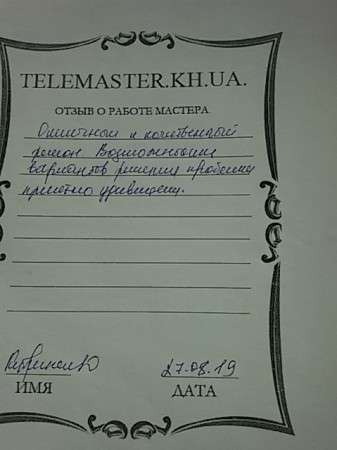 TELEMASTER.KH.UA.
ОТЗЫВ О РАБОТЕ МАСТЕРА
Отличный и качественный
ремонт Возможными
вариантов решения проблемы
приятно удивлены.
27.08.19
ИМЯ
ДАТА